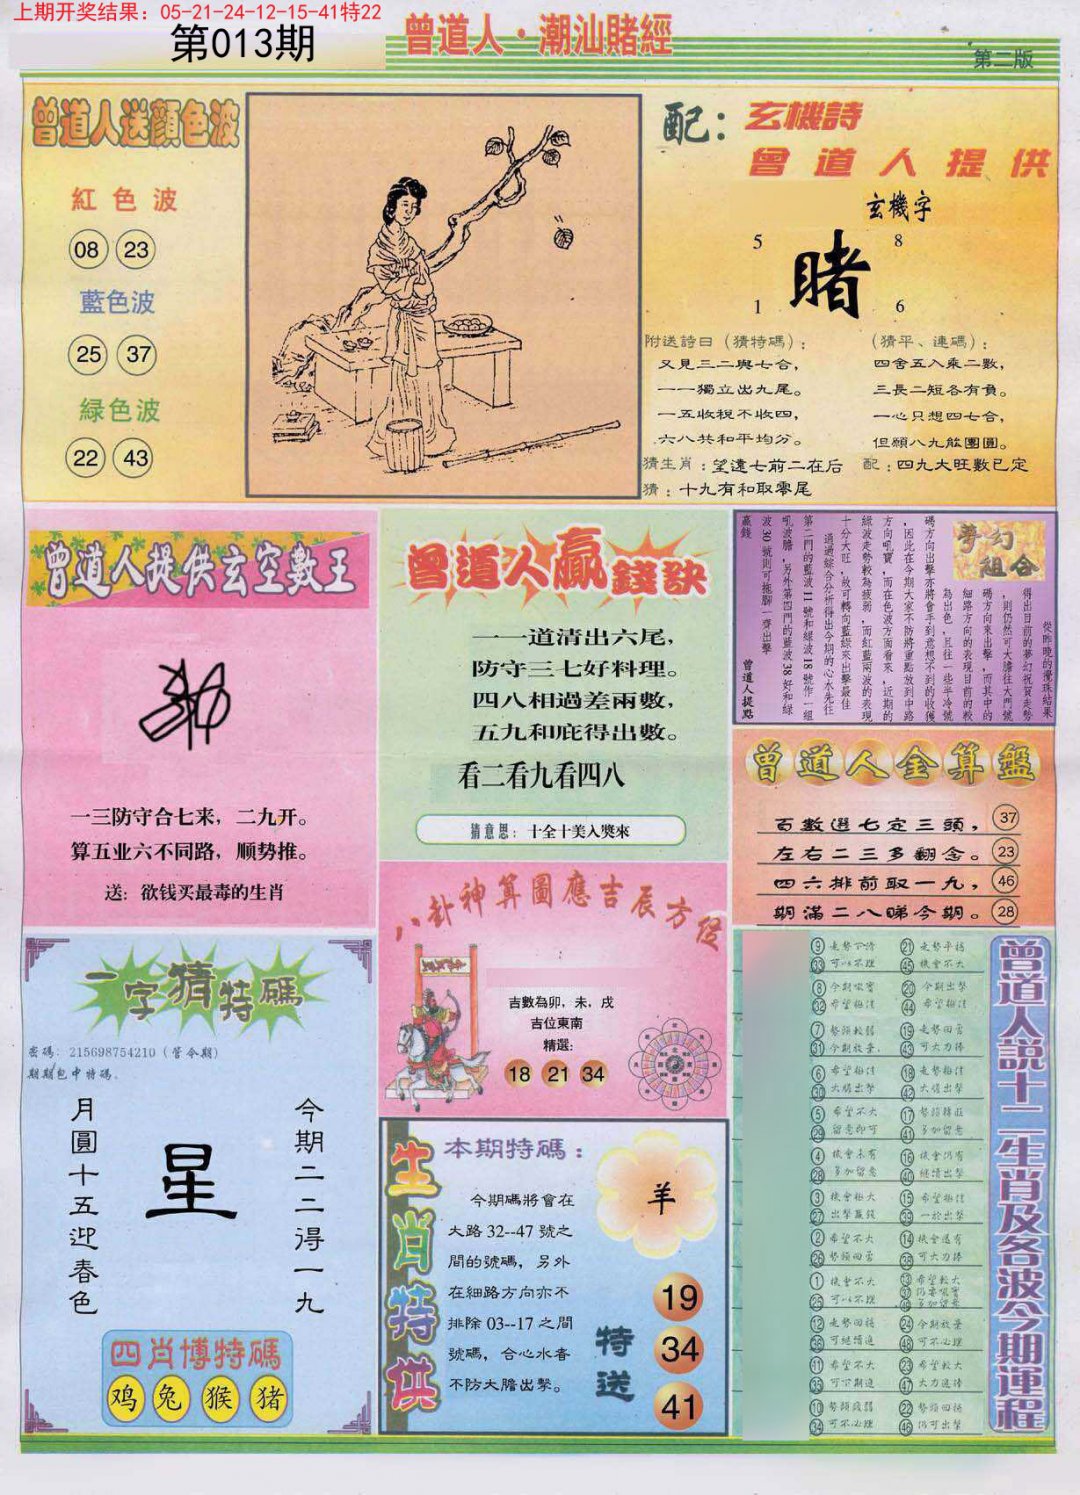 上期开奖结果：05-21-24-12-15-41特22
第013期
曾道人·潮汕賭經
第二版
曾道人送顏色波
紅色波
08 23
藍色波
25 37
緑色波
22 43
配：玄機詩
曾道人提供
玄機字
5 8
賭
1 6
附送詩曰（猜特碼）：
又見三二與七合，
一一獨立出九尾。
一五收視不收四，
六八共和平均分。
（猜平、連碼）：
四舍五入乘二數，
三長二短各有負。
一心只想四七合，
但願八九能團圓。
猜生肖：望遠七前二在后
配：四九大旺數已定
猜：十九有和取零尾
曾道人提供玄空數王
一三防守合七来，二九开。
算五业六不同路，顺势推。
送：欲钱买最毒的生肖
曾道人贏錢訣
一一道清出六尾，
防守三七好料理。
四八相過差兩數，
五九和庇得出數。
看二看九看四八
猜意思：十全十美入獎來
夢幻組合
從昨晚的攪珠結果
得出目前的夢幻祝賀走勢
，則仍然可大膽往大門號
碼方向來出擊，而其中的
細路方向的表現目前的較
為出色，且往一些半冷號
碼方向出擊亦將會手到意想不到的收獲
，因此在今期大家不防將重點放到中路
方向吼寶，而在色波方面看來，近期的
綠波走勢較為疲弱，而紅藍兩波的表現
十分大旺，故可轉向藍綠來出擊最佳
通過綜合分析得出今期的心水先往
第二門的藍波11號和綠波18號作一組
吼波膽，另外第四門的藍波38好和綠
波30號則可拖腳一齊出擊
贏錢
曾道人提點
曾道人金算盤
百數選七定三頭， 37
左右二三多翻念。 23
四六排前取一九， 46
期滿二八睇今期。 28
八卦神算圖應吉辰方位
吉數為卯，未，戌
吉位東南
精選：
18 21 34
一字猜特碼
密碼：215698754210（管今期）
期期包中特碼。
今期二二得一九
星
月圓十五迎春色
四肖博特碼
鸡 兔 猴 猪
生肖特供
本期特碼：
今期碼將會在
大路32--47號之
間的號碼，另外
在細路方向亦不
排除03--17之間
號碼，合心水者
不防大膽出擊。
羊
特送
19
34
41
曾道人說十二生肖及各波今期運程